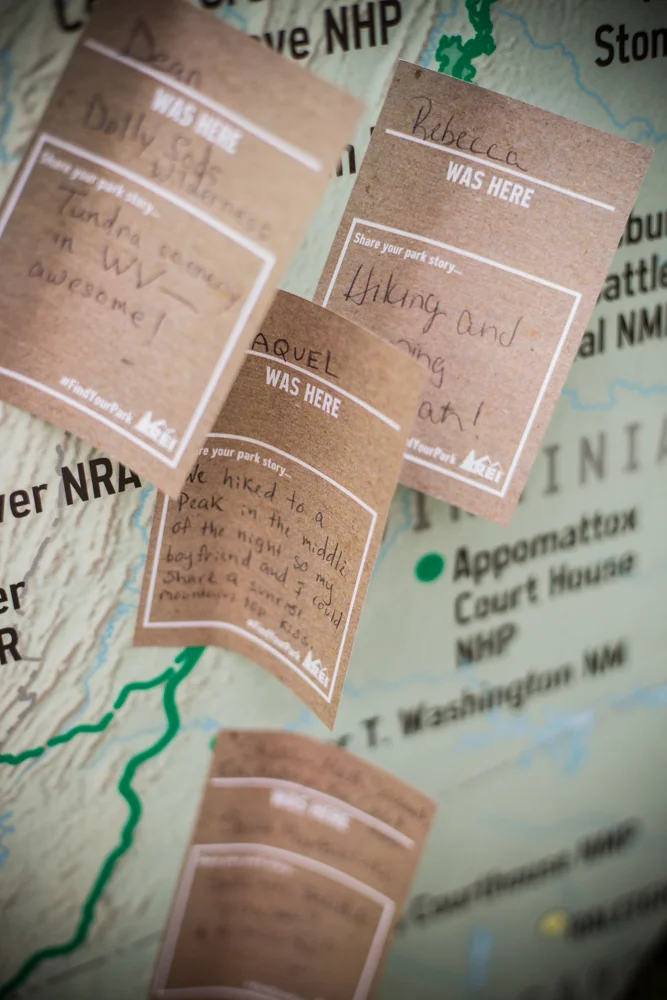 ve NHP
Ston
Dean
WAS HERE
Dolly Sods
Wilderness
Share your park story...
Tundra scenery
in WV—
awesome!
#FindYourPark
REI
Rebecca
WAS HERE
Share your park story...
Hiking and
ing
ah!
dYourPark
REI
AQUEL
WAS HERE
are your park story...
We hiked to a
Peak in the middle
of the night so my
boyfriend and I could
Share a sunrise
mountain top kiss
#FindYourPark
REI
attle
al NM
ver NRA
er
R
INIA
Appomattox
Court House
NHP
r T. Washington NM
WAS HERE
Courthouse NHP